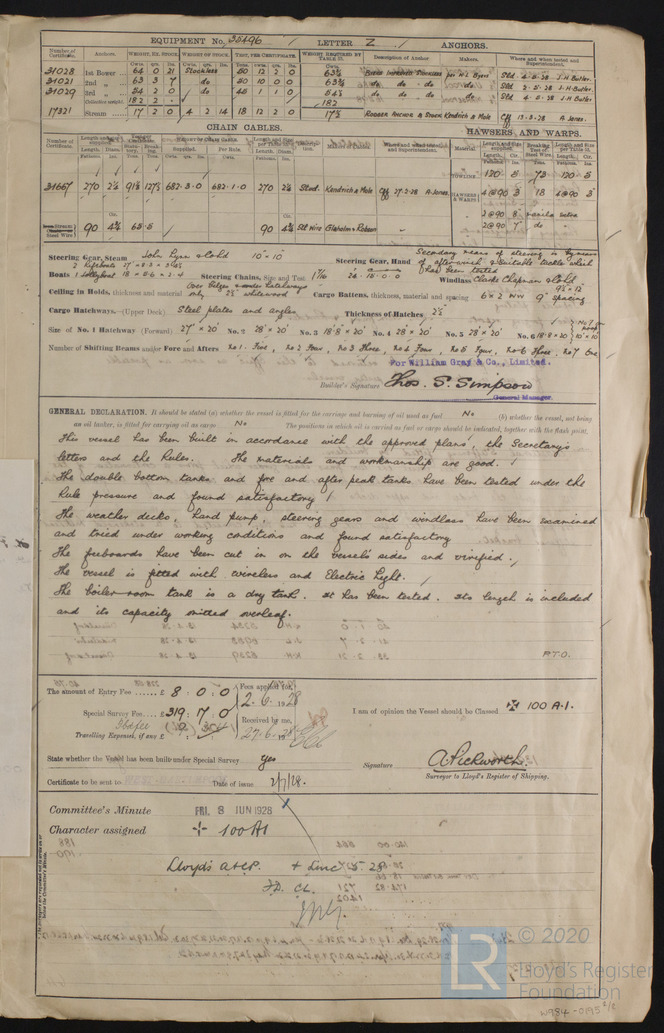 EQUIPMENT No. 35496 LETTER Z ANCHORS.
Number of Certificate. Anchors. WEIGHT, EX. STOCK. WEIGHT OF STOCK. TEST, PER CERTIFICATE WEIGHT REQUIRED BY TABLE 31. Description of Anchor Makers. Where and when tested and Superintendent.
31028 1st Bower 64 0 21 Stockless 50 12 2 0 63¾ Byers Improved Stockless per W.L. Byers Sld 4-5-28 J.H. Butler.
31021 2nd „ 63 3 7 do 50 10 0 0 63¾ do do do Sld 2-5-28 J.H. Butler.
31029 3rd „ 54 2 0 do 45 1 1 0 54½ do do do Sld 4-5-28 J.H. Butler.
Collective weight 182 2 - 182
17321 Stream 17 2 0 4 2 14 18 12 2 0 17½ Rodger Anchor & Stock Kendrick & Mole Cff 13-3-28 A. Jones.
CHAIN CABLES. HAWSERS AND WARPS.
31667 270 2¼ 91⅛ 127½ 682-3-0 682-1-0 270 2¼ Stud Kendrick & Mole Cff 27-3-28 A. Jones.
TOWLINE 120 5 73 120 5
HAWSERS & WARPS 4@90 3 18 4@90 3
2@90 8
2@90 7 do
Stream Steel Wire 90 4¾ 65·5 90 4¾ Stl Wire Glaholm & Robson
Steering Gear, Steam John Lynn & Co Ld 10" × 10" Steering Gear, Hand Secondary means of steering is by means of after winch & suitable tackle which has been tested
Boats 2 Lifeboats 1 Jollyboat 18 × 5·6 × 2·4 Steering Chains, Size and Test 1 7/16 26-15-0-0 Windlass Clarke Chapman & Co Ld 9½" × 12"
Ceiling in Holds, thickness and material Over bilges & under hatchways only 2½" whitewood Cargo Battens, thickness, material and spacing 6" × 2" WW 9" spacing
Cargo Hatchways.—(Upper Deck) Steel plates and angles Thickness of Hatches 2½"
Size of No. 1 Hatchway (Forward) 27' × 20' No. 2 28' × 20' No. 3 18'8" × 20' No. 4 28' × 20' No. 5 28' × 20' No. 6 18'8 × 20 No 7 on poop 10' × 10'
Number of Shifting Beams and/or Fore and Afters No 1. Five, No 2 Four, No 3 Three, No 4 Four, No 5 Four, No 6 Three, No 7 One
For William Gray & Co., Limited.
Builder's Signature Thos. S. Simpson
General Manager
GENERAL DECLARATION. It should be stated (a) whether the vessel is fitted for the carriage and burning of oil used as fuel No (b) whether the vessel, not being
an oil tanker, is fitted for carrying oil as cargo No The positions in which oil is carried as fuel or cargo should be indicated, together with the flash point.
This vessel has been built in accordance with the approved plans, the Secretary's
letters and the Rules. The materials and workmanship are good.
The double bottom tanks and fore and after peak tanks have been tested under the
Rule pressure and found satisfactory
The weather decks, hand pump, steering gears and windlass have been examined
and tried under working conditions and found satisfactory
The freeboards have been cut in on the vessel's sides and verified.
The vessel is fitted with wireless and Electric Light.
The boiler room tank is a day tank. It has been tested. Its length is included
and its capacity omitted overleaf.
P.T.O.
The amount of Entry Fee ...... £ 8 : 0 : 0 Fees applied for, 2.6.1928
Special Survey Fee.... £ 319 : 7 : 0 Received by me,
Travelling Expenses, if any £ 27.6.1928
I am of opinion the Vessel should be Classed ✠ 100 A·1.
State whether the Vessel has been built under Special Survey Yes Signature A. Pickworth.
Surveyor to Lloyd's Register of Shipping.
Certificate to be sent to Date of issue 2/7/28.
Committee's Minute FRI. 8 JUN 1928
Character assigned ✠ 100A1
Lloyd's A&CP. + LMC 5.28
F.D. CL.
LR © 2020
Lloyd's Register
Foundation
W984-0195 2/2